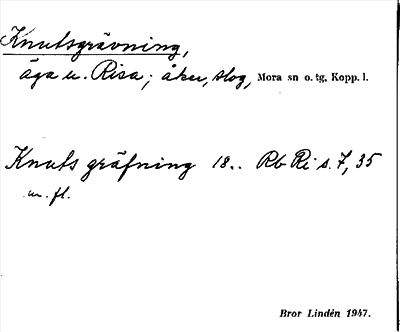 Knutsgrävning,
äga u. Risa; åker, slog, Mora sn o. tg, Kopp. l.
Knuts gräfning 18.. Rb Ri s. 7, 35
m. fl.
Bror Lindén 1947.